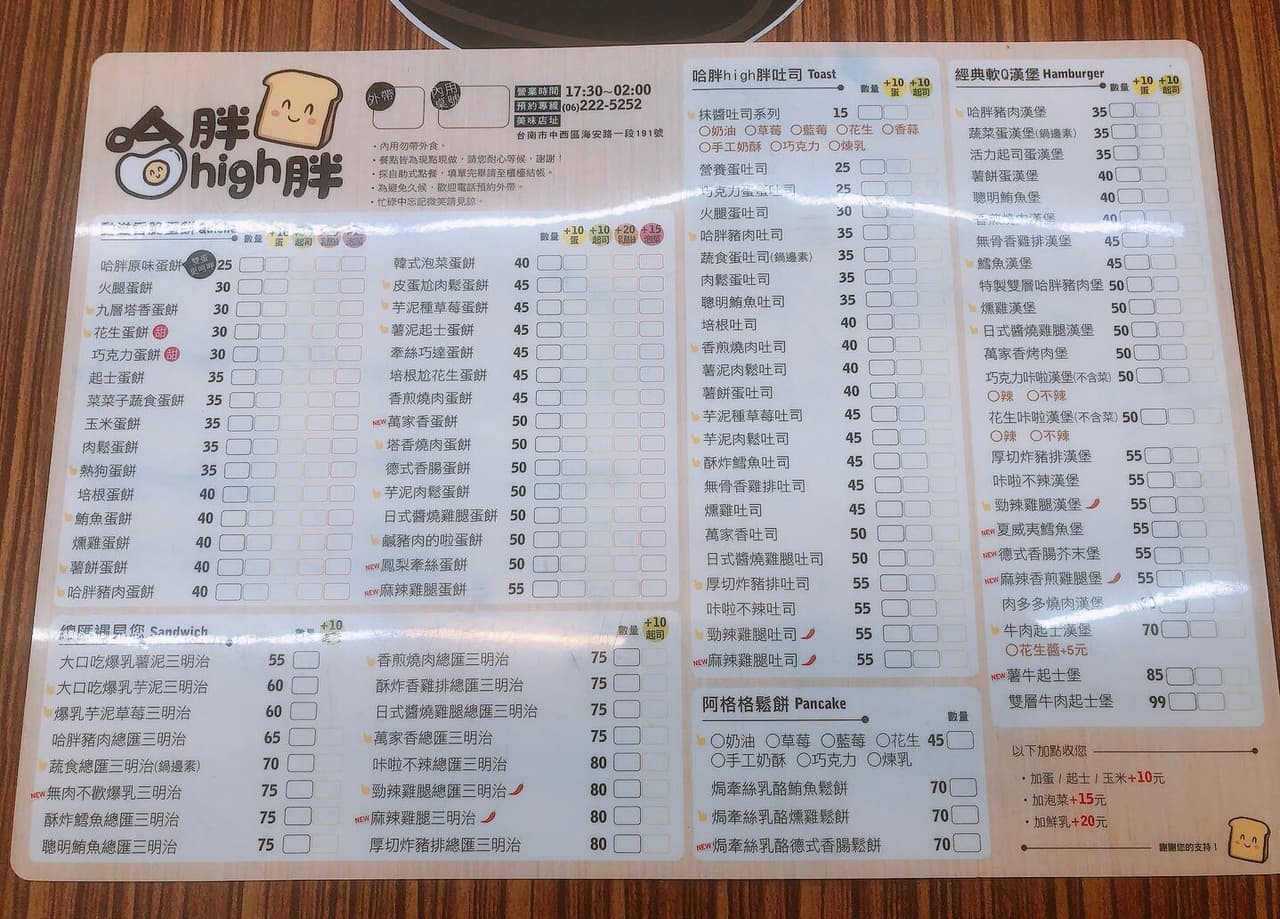 哈胖
high胖
外帶
內用
桌號
營業時間 17:30~02:00
預約專線 (06)222-5252
美味店址
台南市中西區海安路一段191號
・內用勿帶外食。
・餐點皆為現點現做，請您耐心等候，謝謝！
・採自助式點餐，填單完畢請至櫃檯結帳。
・為避免久候，歡迎電話預約外帶。
・忙碌中忘記微笑請見諒。
蛋餅
數量 +10 起司
哈胖原味蛋餅 25
雙蛋
火腿蛋餅 30
九層塔香蛋餅 30
花生蛋餅 甜 30
巧克力蛋餅 甜 30
起士蛋餅 35
菜菜子蔬食蛋餅 35
玉米蛋餅 35
肉鬆蛋餅 35
熱狗蛋餅 35
培根蛋餅 40
鮪魚蛋餅 40
燻雞蛋餅 40
薯餅蛋餅 40
哈胖豬肉蛋餅 40
數量 +10 蛋 +10 起司 +20 +15 泡菜
韓式泡菜蛋餅 40
皮蛋尬肉鬆蛋餅 45
芋泥種草莓蛋餅 45
薯泥起士蛋餅 45
牽絲巧達蛋餅 45
培根尬花生蛋餅 45
香煎燒肉蛋餅 45
NEW 萬家香蛋餅 50
塔香燒肉蛋餅 50
德式香腸蛋餅 50
芋泥肉鬆蛋餅 50
日式醬燒雞腿蛋餅 50
鹹豬肉的啦蛋餅 50
NEW 鳳梨牽絲蛋餅 50
NEW 麻辣雞腿蛋餅 55
總匯遇見您 Sandwich
數量 +10
大口吃爆乳薯泥三明治 55
大口吃爆乳芋泥三明治 60
爆乳芋泥草莓三明治 60
哈胖豬肉總匯三明治 65
蔬食總匯三明治(鍋邊素) 70
NEW 無肉不歡爆乳三明治 75
酥炸鱈魚總匯三明治 75
聰明鮪魚總匯三明治 75
數量 +10 起司
香煎燒肉總匯三明治 75
酥炸香雞排總匯三明治 75
日式醬燒雞腿總匯三明治 75
萬家香總匯三明治 75
咔啦不辣總匯三明治 80
勁辣雞腿總匯三明治 80
NEW 麻辣雞腿三明治 80
厚切炸豬排總匯三明治 80
哈胖high胖吐司 Toast
數量 +10 蛋 +10 起司
抹醬吐司系列 15
○奶油 ○草莓 ○藍莓 ○花生 ○香蒜
○手工奶酥 ○巧克力 ○煉乳
營養蛋吐司 25
巧克力蛋蛋吐司 25
火腿蛋吐司 30
哈胖豬肉吐司 35
蔬食蛋吐司(鍋邊素) 35
肉鬆蛋吐司 35
聰明鮪魚吐司 35
培根吐司 40
香煎燒肉吐司 40
薯泥肉鬆吐司 40
薯餅蛋吐司 40
芋泥種草莓吐司 45
芋泥肉鬆吐司 45
酥炸鱈魚吐司 45
無骨香雞排吐司 45
燻雞吐司 45
萬家香吐司 50
日式醬燒雞腿吐司 50
厚切炸豬排吐司 55
咔啦不辣吐司 55
勁辣雞腿吐司 55
NEW 麻辣雞腿吐司 55
阿格格鬆餅 Pancake
數量
○奶油 ○草莓 ○藍莓 ○花生 45
○手工奶酥 ○巧克力 ○煉乳
焗牽絲乳酪鮪魚鬆餅 70
焗牽絲乳酪燻雞鬆餅 70
NEW 焗牽絲乳酪德式香腸鬆餅 70
經典軟Q漢堡 Hamburger
數量 +10 蛋 +10 起司
哈胖豬肉漢堡 35
蔬菜蛋漢堡(鍋邊素) 35
活力起司蛋漢堡 35
薯餅蛋漢堡 40
聰明鮪魚堡 40
香煎燒肉漢堡 40
無骨香雞排漢堡 45
鱈魚漢堡 45
特製雙層哈胖豬肉堡 50
燻雞漢堡 50
日式醬燒雞腿漢堡 50
萬家香烤肉堡 50
巧克力咔啦漢堡(不含菜) 50
○辣 ○不辣
花生咔啦漢堡(不含菜) 50
○辣 ○不辣
厚切炸豬排漢堡 55
咔啦不辣漢堡 55
勁辣雞腿漢堡 55
NEW 夏威夷鱈魚堡 55
NEW 德式香腸芥末堡 55
NEW 麻辣香煎雞腿堡 55
肉多多燒肉漢堡
牛肉起士漢堡 70
○花生醬+5元
NEW 薯牛起士堡 85
雙層牛肉起士堡 99
以下加點收您
・加蛋 / 起士 / 玉米+10元
・加泡菜+15元
・加鮮乳+20元
謝謝您的支持！